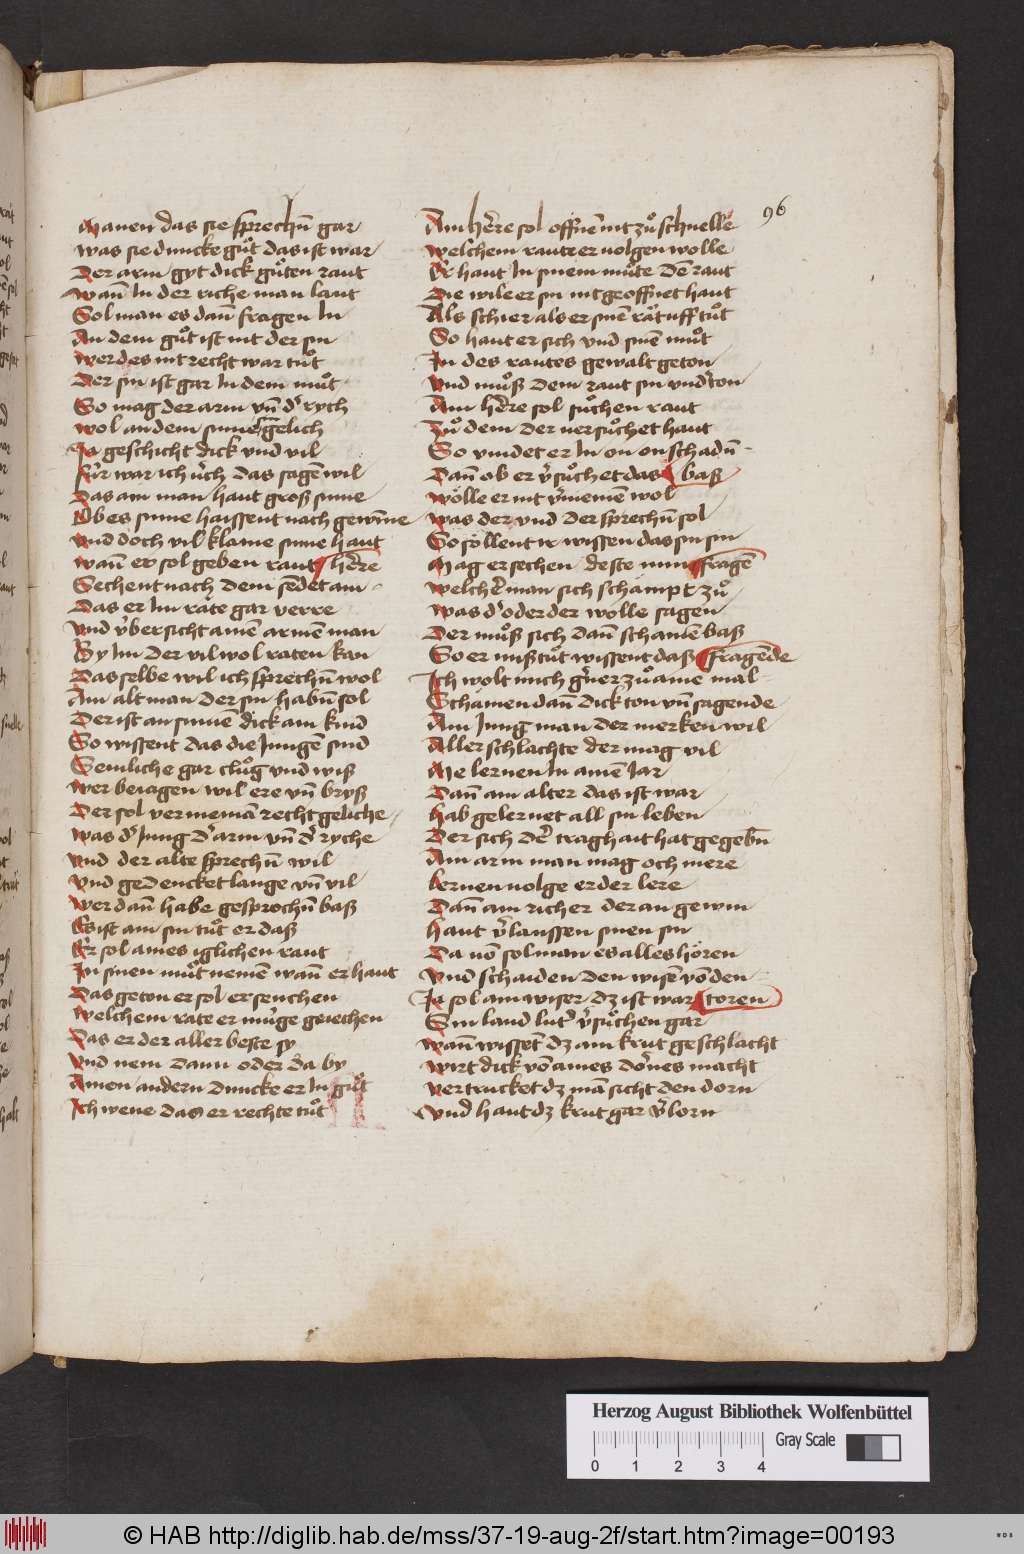 96
Mainen das sie sprechn̄ gar
Was sie duncke gůt das ist war
Der arm gyt dick gůten raut
Wan̄ In der riche man laut
Sol man es dan̄ fragen In
An dem gůt ist nit der sin
Wer des nit recht war tůt
Der sin ist gar In dem můt
So mag der arm vn̄ d' rych
Wol an dem sinne gelich
Ja geschicht dick vnd vil
Fúr war ich úch das sagē wil
Das am man haut groß sinne
Ob es sinne haissent nach gewīne
Vnd doch vil klaine sinne haut
Wan̄ er sol geben raut / herre
Sechent nach dem sēdet ain
Das er Im räte gar verre
Vnd v̓bersicht ainē armē man
By Im der vil wol raten kan
Das selbe wil ich sprechn̄ wol
Ain alt man der sin habn̄ sol
Der ist an sinnē dick ain kind
So wissent das die Jungē sind
Semliche gar clůg vnd wiß
Wer beiagen wil ere vn̄ bryß
Der sol verneman̄ recht geliche
Was d' Jung d' arm vn̄ d' ryche
Vnd der alte sprechn̄ wil
Vnd gedencket lange vn̄ vil
Wer dan̄ habe gesprochn̄ baß
Es ist ain sin tůt er daß
Er sol aines iglichen raut
In sinen můt nemē wan̄ er haut
Das geton er sol ersenchen
Welchem rate er múge geiechen
Das er der aller beste sy
Vnd nem dann oder da by
Ainen andern duncke er In gůt
Ich wene das er rechte tůt
Ain h'̄re sol offnē nit zů schnelle
Welchem raut er uolgen wolle
Er haut In sinem můte dē raut
Die wile er sin nit geoffnet haut
Als schier als er sinē rät uff tůt
So haut er sich vnd sinē můt
In des rautes gewalt geton
Vnd můß dem raut sin vnd'ton
Ain h'̄re sol sůchen raut
Zů dem der uersůchet haut
So vindet er In on on schadn̄
Dan̄ ob er v̓sůchet das / baß
Wölle er nit v̓nemē wol
Was der vnd der sprechn̄ sol
So söllent ir wissen das sin sin
Mag er sechen deste min / fragē
Welcher man sich schämpt zů
Was d' oder der wölle sagen
Der můß sich dan̄ schamē baß
So er mißtůt wissent daß / fragēde
Ich wolt mich g'ner zů aine mal
Schämen dan̄ dick von sagende
Ain Jung man der merken wil
Aller schlachte der mag vil
Me lernen In ainē Jar
Dan̄ ain alter das ist war
Hab gelernet all sin leben
Der sich der traghait hat gegebn̄
Ain arm man mag och mere
Lernen uolge er der lere
Dan̄ ain richer der an gewin
Haut v̓laussen sinen sin
Da uō sol man es alles hören
Vnd schaiden den wisē vō den
Ja sol ain wiser dz ist war / toren
Sin land lut' v̓sůchen gar
Wan̄ wissēt dz ain krut geschlacht
Wirt dick vō aines dornes macht
Vertrucket dz mā sicht den dorn
Vnd haut dz krut gar v̓lorn
Herzog August Bibliothek Wolfenbüttel
Gray Scale
0 1 2 3 4
© HAB http://diglib.hab.de/mss/37-19-aug-2f/start.htm?image=00193